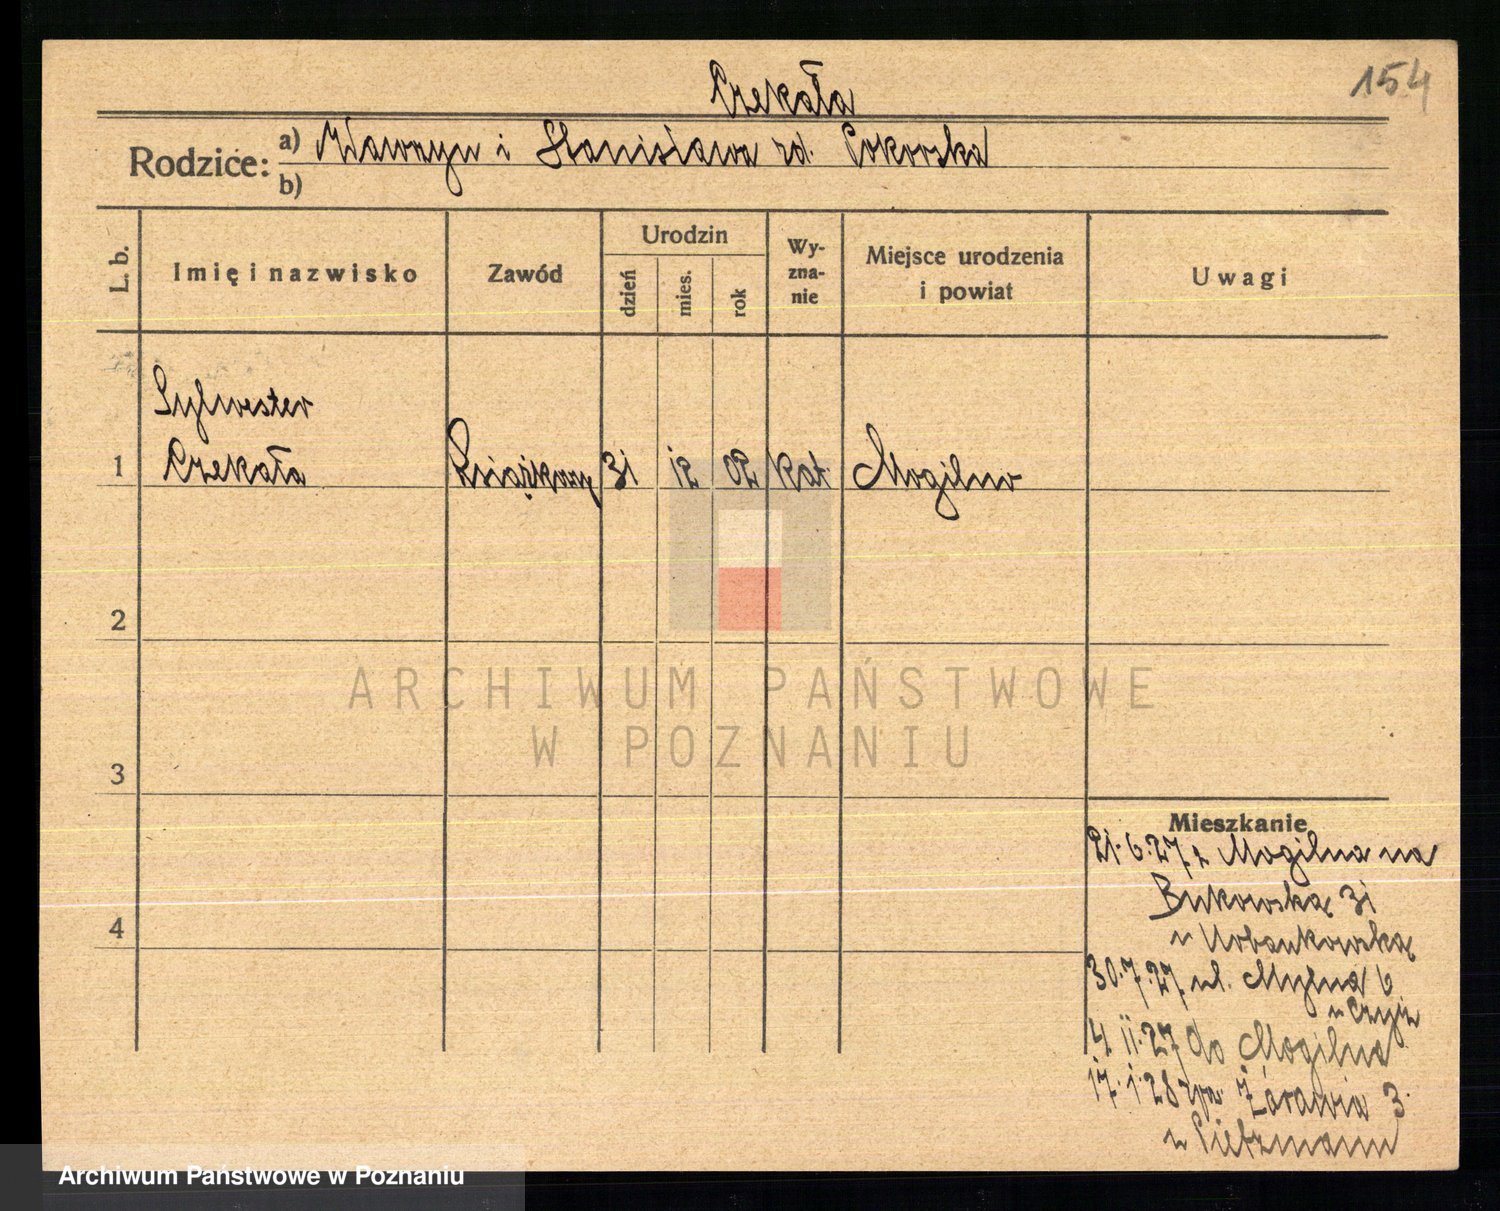 Czekała
154
Rodzice: a) Wawrzyn i Stanisława rd.
b)
L. b.
Imię i nazwisko
Zawód
Urodzin
dzień
mies.
rok
Wy-
zna-
nie
Miejsce urodzenia
i powiat
Uwagi
Sylwester
1 Czekała Książkowy 31 12 02 kat. Mogilno
2
3
4
Mieszkanie
21.6.27 z Mogilna na
Bukowską 31
u Urbankowską
30.7.27 ul. Mylna 6
u Czyż
4 11.27 do Mogilna
17.1.28 Żórawia 3.
u Pietzmann
ARCHIWUM PAŃSTWOWE
W POZNANIU
Archiwum Państwowe w Poznaniu